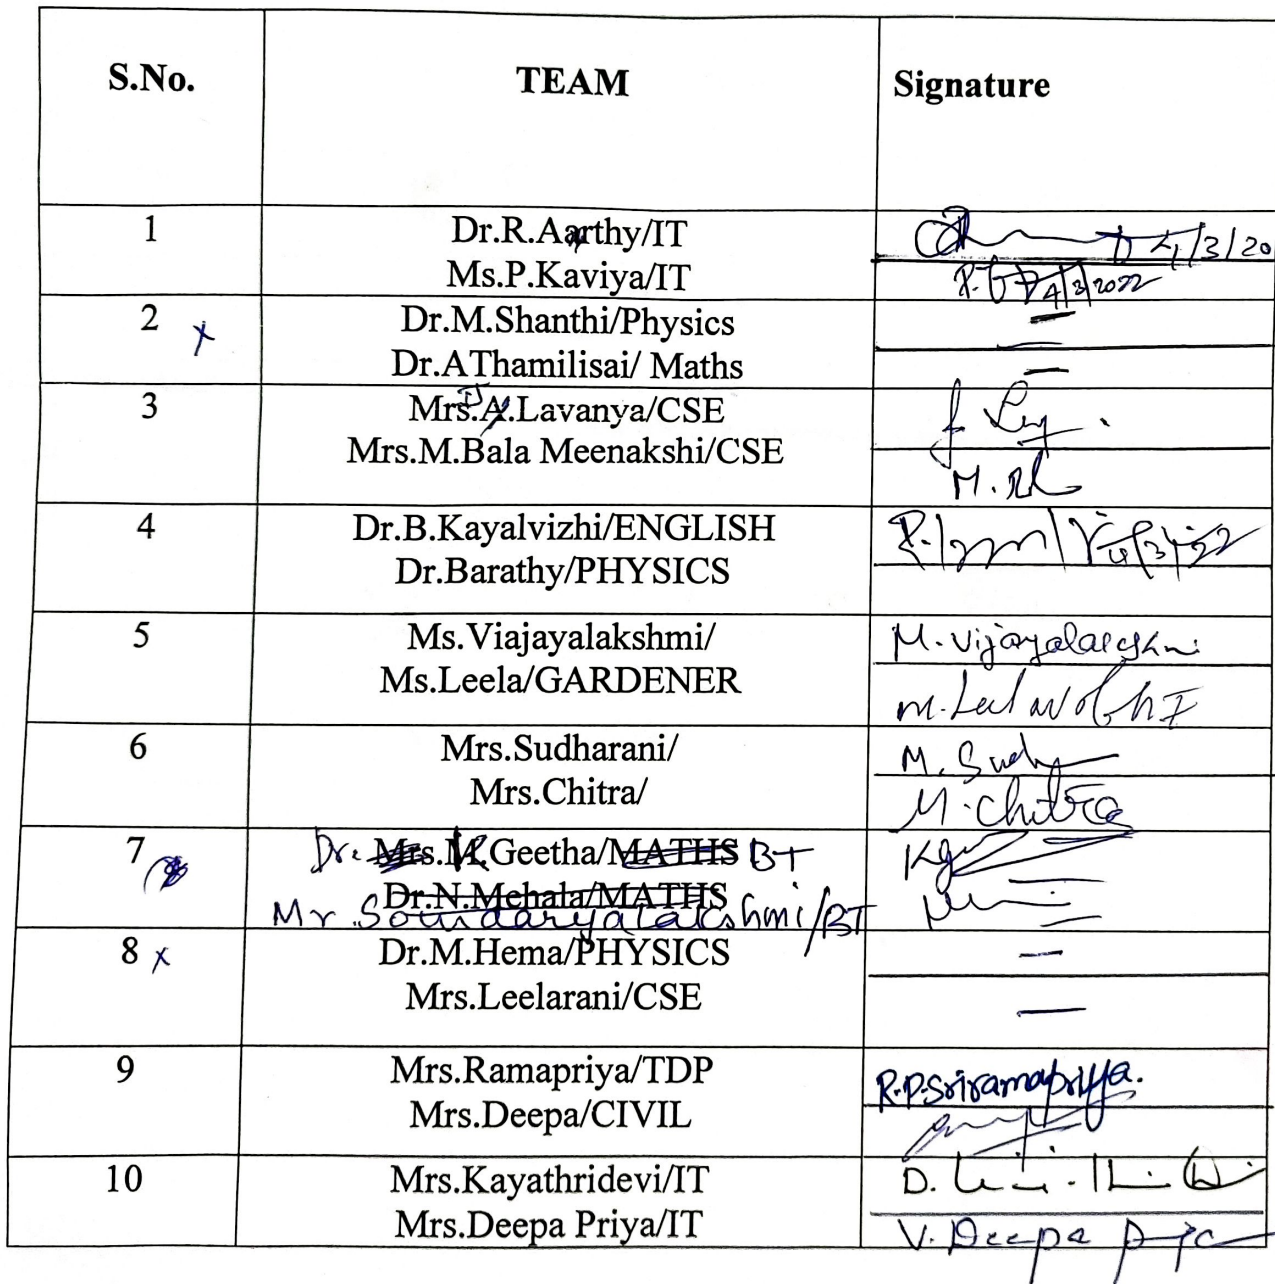 S.No. TEAM Signature
1 Dr.R.Aarthy/IT 4/3/20
Ms.P.Kaviya/IT P. 4/3/2022
2 x Dr.M.Shanthi/Physics —
Dr.AThamilisai/ Maths —
3 Mrs.A.Lavanya/CSE
Mrs.M.Bala Meenakshi/CSE M.
4 Dr.B.Kayalvizhi/ENGLISH 4/3/22
Dr.Barathy/PHYSICS
5 Ms.Viajayalakshmi/ M. Vijayalakshmi
Ms.Leela/GARDENER
6 Mrs.Sudharani/ M. Sudh
Mrs.Chitra/ M. Chitra
7 Dr. Mrs.M.K.Geetha/MATHS BT
Dr.N.Mehala/MATHS
Mr. Soundaryalakshmi/BT
8 x Dr.M.Hema/PHYSICS —
Mrs.Leelarani/CSE —
9 Mrs.Ramapriya/TDP R.P.Sriramapriya.
Mrs.Deepa/CIVIL
10 Mrs.Kayathridevi/IT D.
Mrs.Deepa Priya/IT V. Deepa Priya